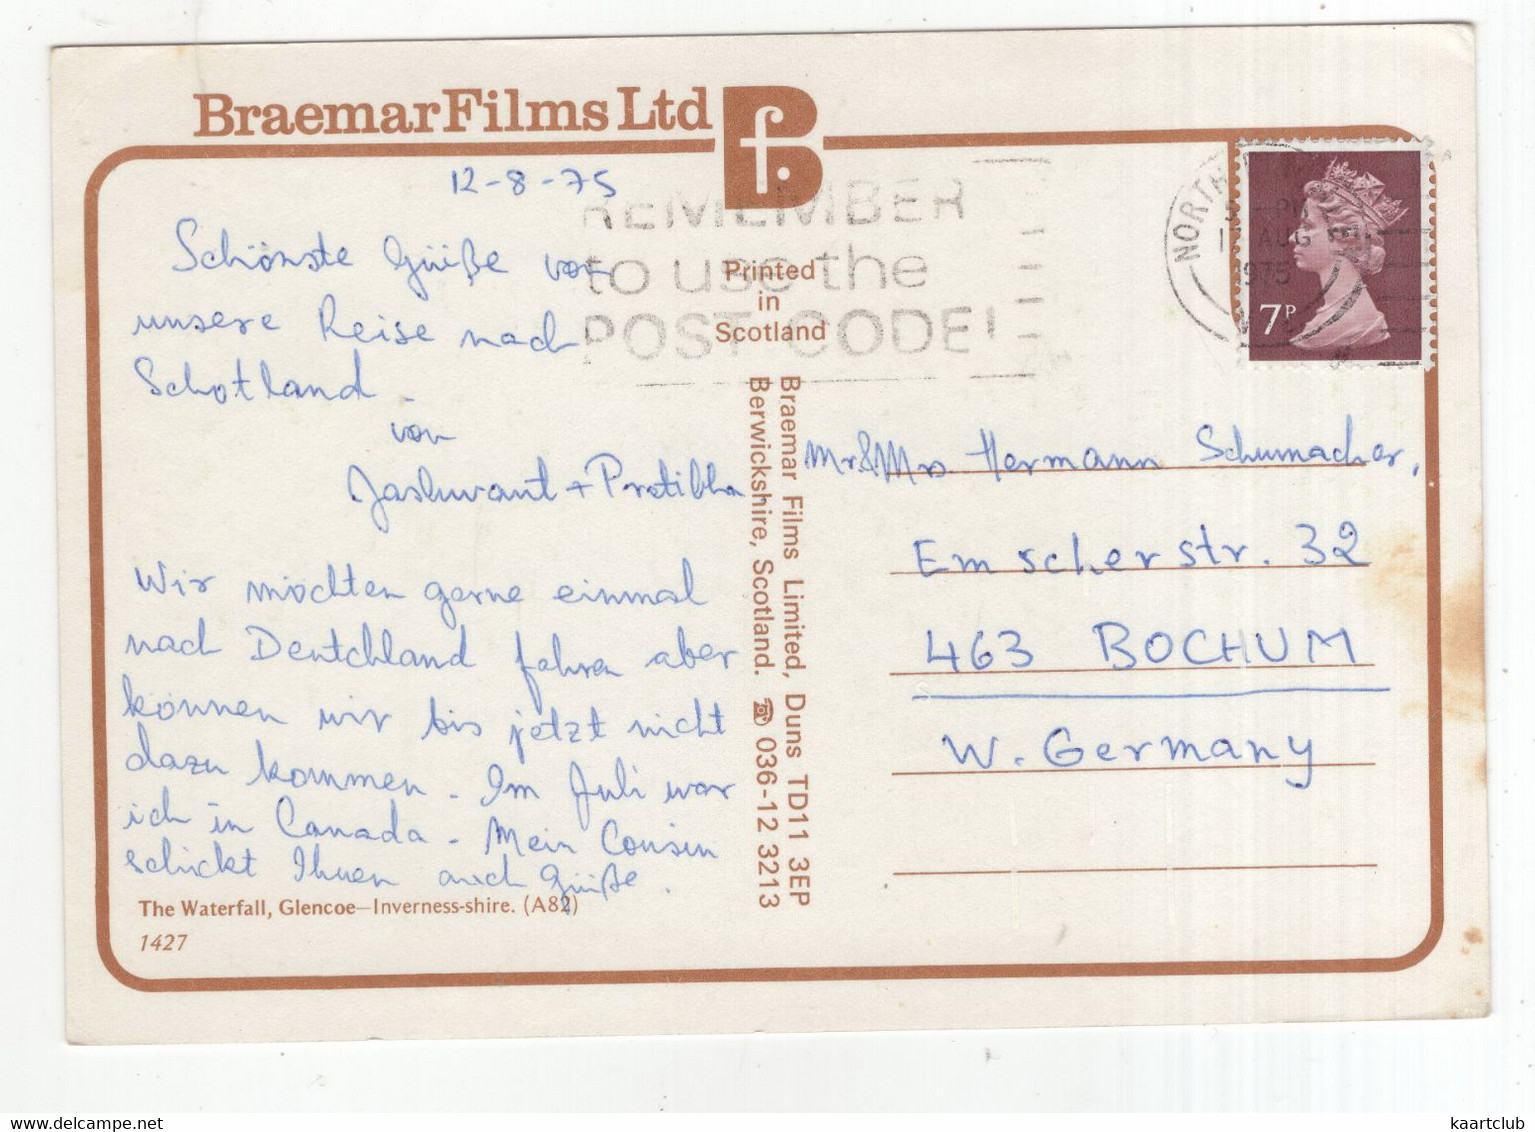 Braemar Films Ltd
Bf.
12-8-75
Schönste Grüße von
unsere Reise nach
Schotland -
von
Jashwant + Pratibha
Wir möchten gerne einmal
nach Deutchland fahren aber
können wir bis jetzt nicht
dazu kommen. Im Juli war
ich in Canada. Mein Cousin
schickt Ihnen auch Grüße.
The Waterfall, Glencoe—Inverness-shire. (A82)
1427
REMEMBER
to use the
POST CODE!
Printed
in
Scotland
Braemar Films Limited, Duns TD11 3EP
Berwickshire, Scotland. ☎ 036-12 3213
NORTH
5 - PM
AUG
1975
7P
Mr.&.Mrs. Hermann Schumacher,
Emscherstr. 32
463 BOCHUM
W. Germany
kaartclub